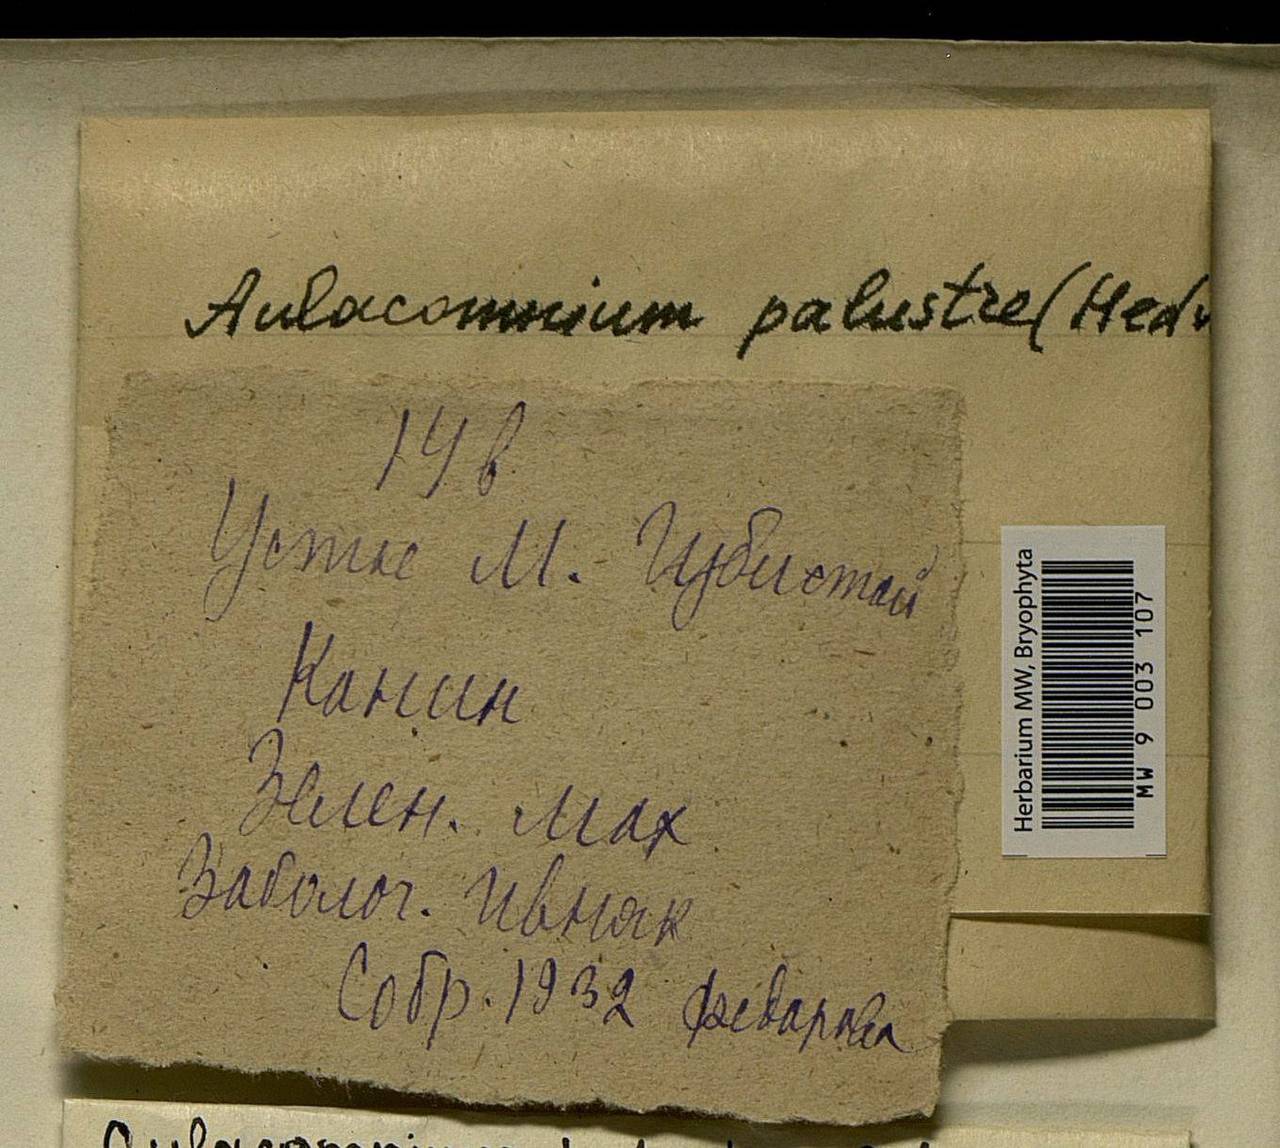 Aulacomnium palustre (Hedw
14 в
Устье М. Губистой
Канин
Зелен. мох
Заболоч. ивняк
Собр. 1932 Федорова
Herbarium MW, Bryophyta
MW 9 003 107